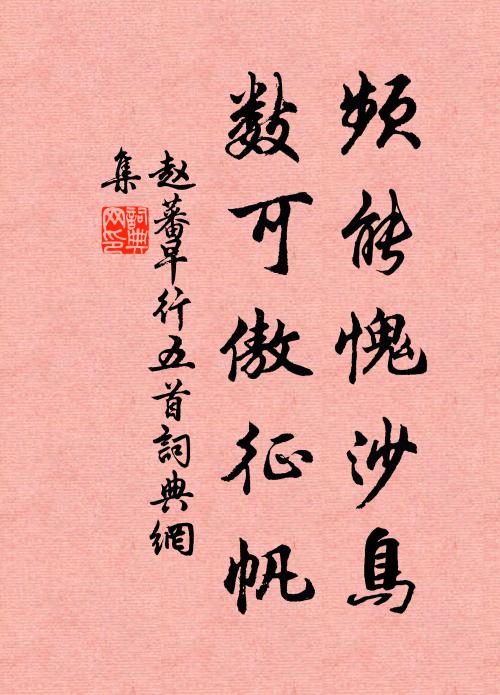 频能愧沙鳥
数可傲征帆
赵蕃早行五首詞典網
集
詞典
网印